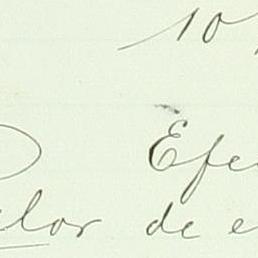 10
Efe
elor de e